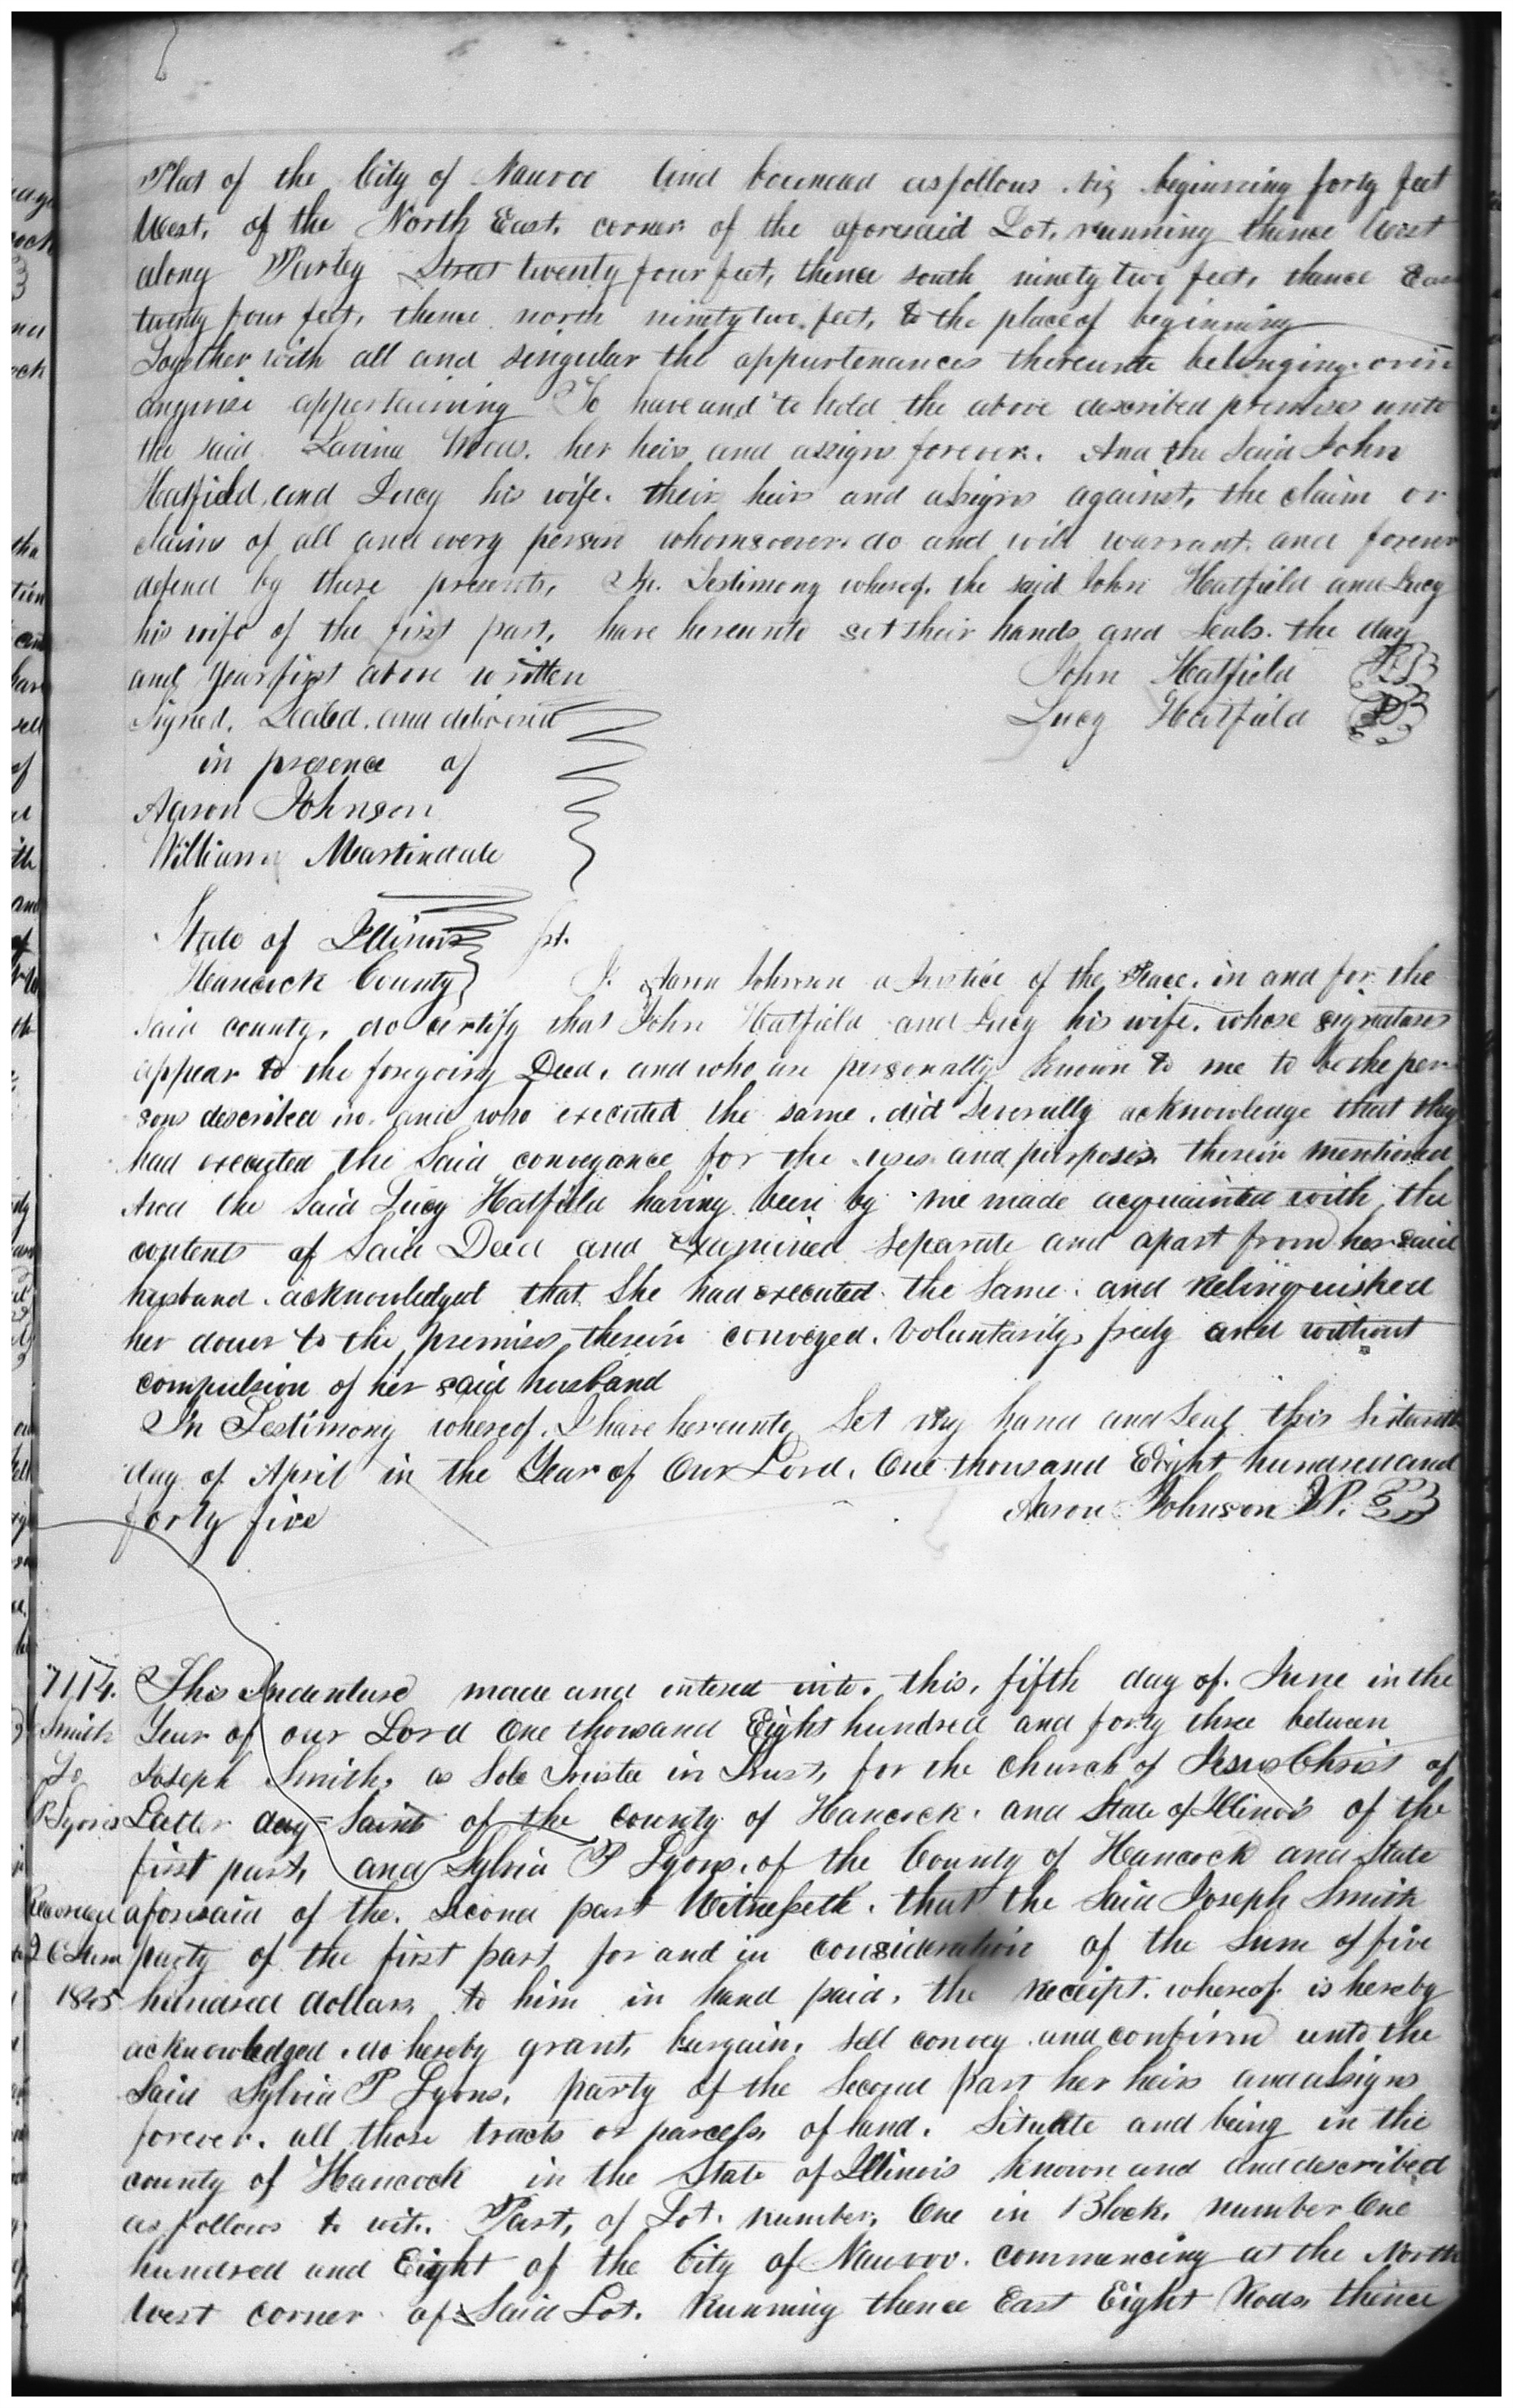 Plat of the City of Nauvoo And bounded as follows. viz beginning forty feet
West, of the North East, corner of the aforesaid Lot, running thence West
along Parley Street twenty four feet, thence south ninety two feet, thence Eas
twenty four feet, thence north ninety two feet, to the place of beginning
Together with all and singular the appurtenances thereunto belonging. or in
anywise appertaining To have and to hold the above described premises unto
the said Lavina her heirs and assigns forever. And the Said John
Hatfield, and Lucy his wife. their heirs and assigns against, the claim or
claims of all and every person whomsoever. do and will warrant. and forever
defend by these presents, In. Testimony whereof. the said John Hatfield and Lucy
his wife of the first part, have hereunto set their hands and Seals. the day
and Year first above written John Hatfield
Signed, Sealed. and delivered Lucy Hatfield
in presence of
Aaron Johnson
William Martindale
State of Illinois
Hancock County I. Aaron Johnson a Justice of the Peace. in and for the
Said county, do certify that John Hatfield and Lucy his wife. whose signatures
appear to the foregoing Deed, and who are personally known to me to be the per
sons described in. and who executed the same. did Severally acknowledge that they
had executed the Said conveyance for the uses and purposes therein mentioned
And the Said Lucy Hatfield having been by me made acquainted with the
contents of Said Deed and Examined Separate and apart from her said
husband. acknowledged that She had executed the Same. and Relinquished
her dower to the premises therein conveyed. Voluntarily, freely and without
compulsion of her said husband
In Testimony whereof. I have hereunto Set my hand and Seal this Sixteenth
day of April in the Year of Our Lord. One thousand Eight hundred and
forty five Aaron Johnson J.P.
7114. This Indenture made and entered into. this, fifth day of. June in the
Smith Year of our Lord One thousand Eight hundred and forty three between
To Joseph Smith, as Sole Trustee in Trust, for the Church of Jesus Christ of
P Lyons Latter day= Saints of the County of Hancock. and State of Illinois of the
first part, and Sylvia P Lyons. of the County of Hancock and State
aforesaid of the. Second part Witnesseth. that the Said Joseph Smith
party of the first part for and in consideration of the Sum of five
1845 hundred dollars to him in hand paid, the receipt. whereof is hereby
acknowledged. do hereby grant, bargain, sell convey and confirm unto the
Said Sylvia P Lyons, party of the Second part her heirs and assigns
forever. all those tracts or parcels of land. Situate and being in the
county of Hancock in the State of Illinois known and and described
as follows to wit. Part, of Lot. number. One in Block. number One
hundred and Eight of the City of Nauvoo. commencing at the North
West corner of Said Lot. Running thence East Eight Rods, thence